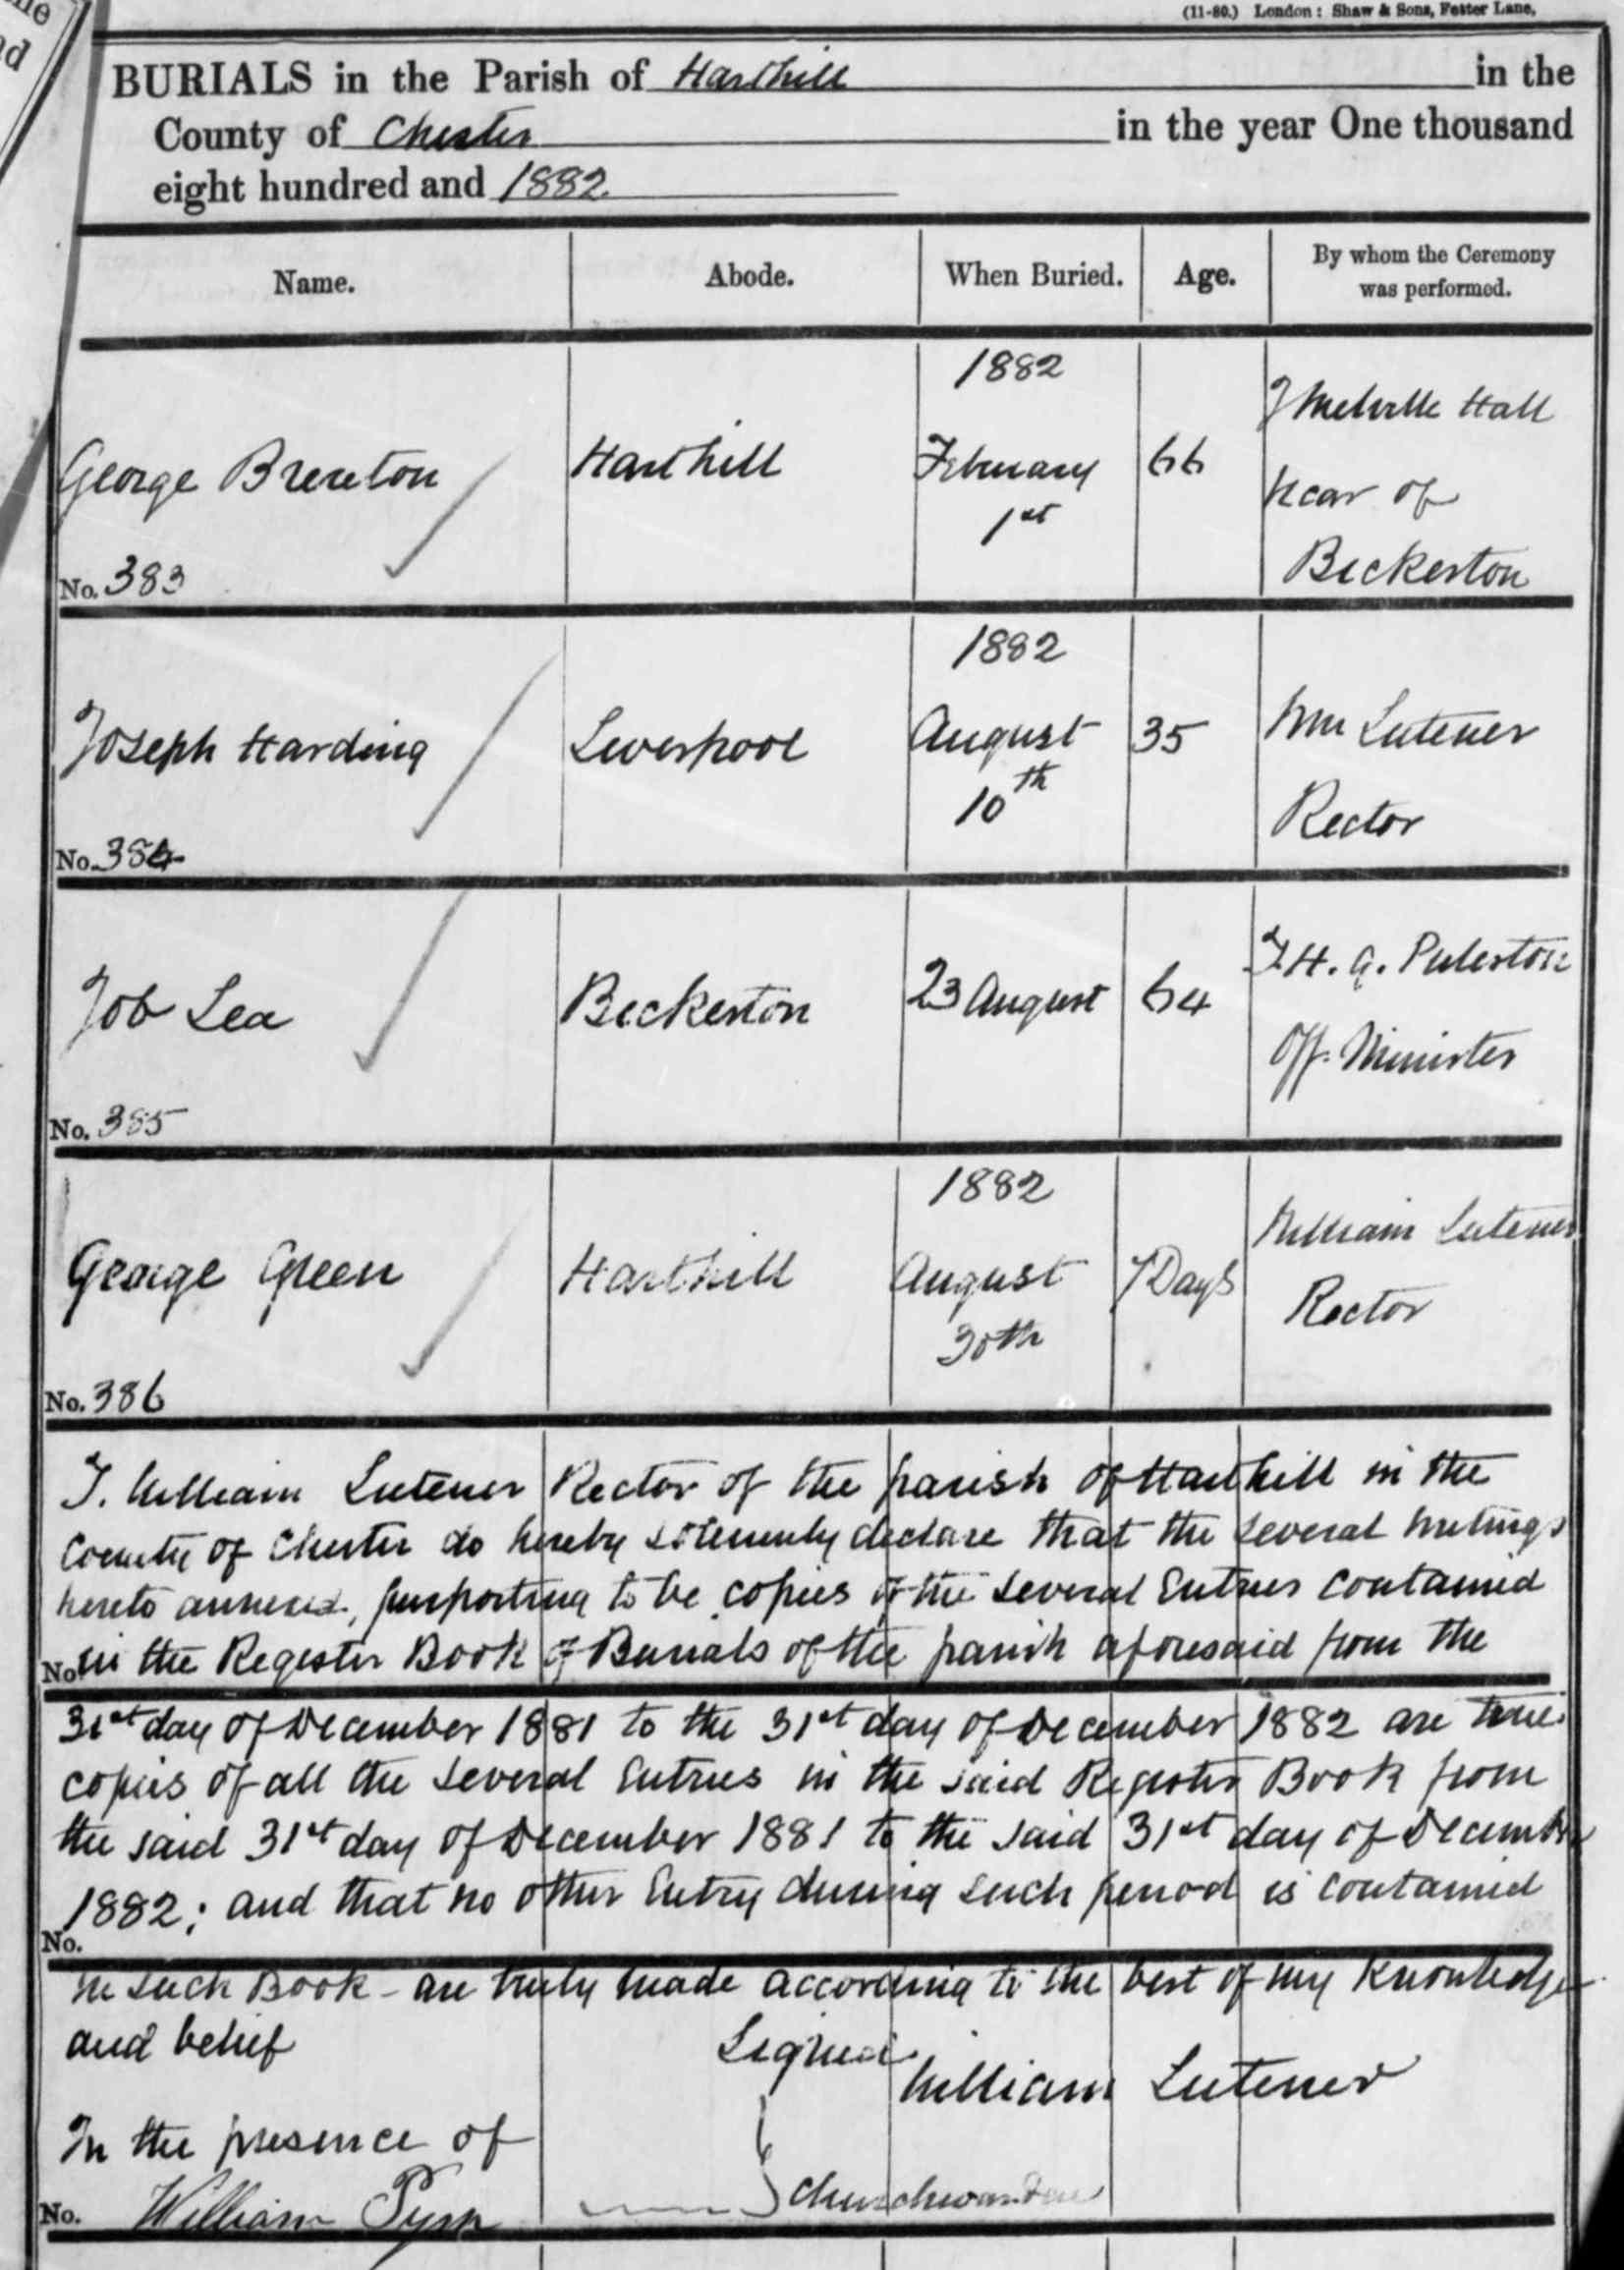 (11-80.) London: Shaw & Sons, Fetter Lane,
BURIALS in the Parish of Harthill in the
County of Chester in the year One thousand
eight hundred and 1882
Name. Abode. When Buried. Age. By whom the Ceremony was performed.
1882
George Brereton Harthill February 1st 66 J Melville Hall
Vicar of
Bickerton
No. 383
1882
Joseph Harding Liverpool August 10th 35 Wm Lutener
Rector
No. 384
Job Lea Bickerton 23 August 64 H. G. Puleston
Off. Minister
No. 385
1882
George Green Harthill August 30th 7 Days William Lutener
Rector
No. 386
I. William Lutener Rector of the parish of Harthill in the
County of Chester do hereby solemnly declare that the several writings
hereto annexed, purporting to be copies of the several Entries contained
No. in the Register Book of Burials of the parish aforesaid from the
31st day of December 1881 to the 31st day of December 1882 are true
copies of all the several Entries in the said Register Book from
the said 31st day of December 1881 to the said 31st day of December
1882; and that no other Entry during such period is contained
No.
in such Book - are truly made according to the best of my Knowledge
and belief
Signed
William Lutener
In the presence of
No. William Churchwarden